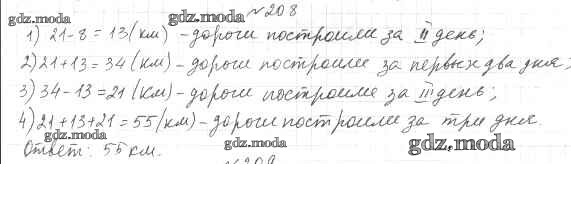 gdz.moda gdz.moda №208
1) 21-8 = 13 (км) - дороги построили за II день;
2) 21+13 = 34 (км) - дороги построили за первых два дня;
3) 34-13 = 21 (км) - дороги построили за III день;
4) 21+13+21 = 55 (км) - дороги построили за три дня.
gdz.moda gdz.moda gdz.moda
Ответ: 55 км.
№209